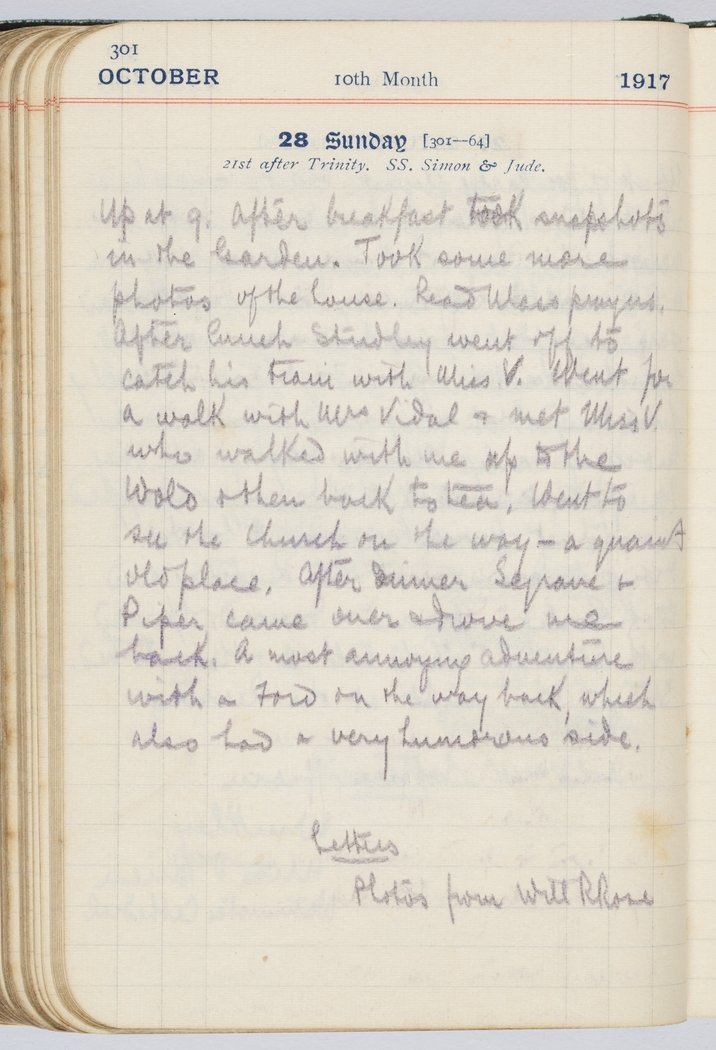 301
OCTOBER 10th Month 1917
28 Sunday [301—64]
21st after Trinity. SS. Simon & Jude.
Up at 9. After breakfast took snapshots
in the Garden. Took some more
photos of the house. Read Mass prayers.
After lunch Studley went off to
catch his train with Miss V. Went for
a walk with Mrs Vidal & met Miss V
who walked with me up to the
Wold & then back to tea. Went to
see the Church on the way – a quaint
old place. After dinner Segrave &
Piper came over & drove me
back. A most annoying adventure
with a Ford on the way back, which
also had a very humorous side.
Letters
Photos from Will R Rose